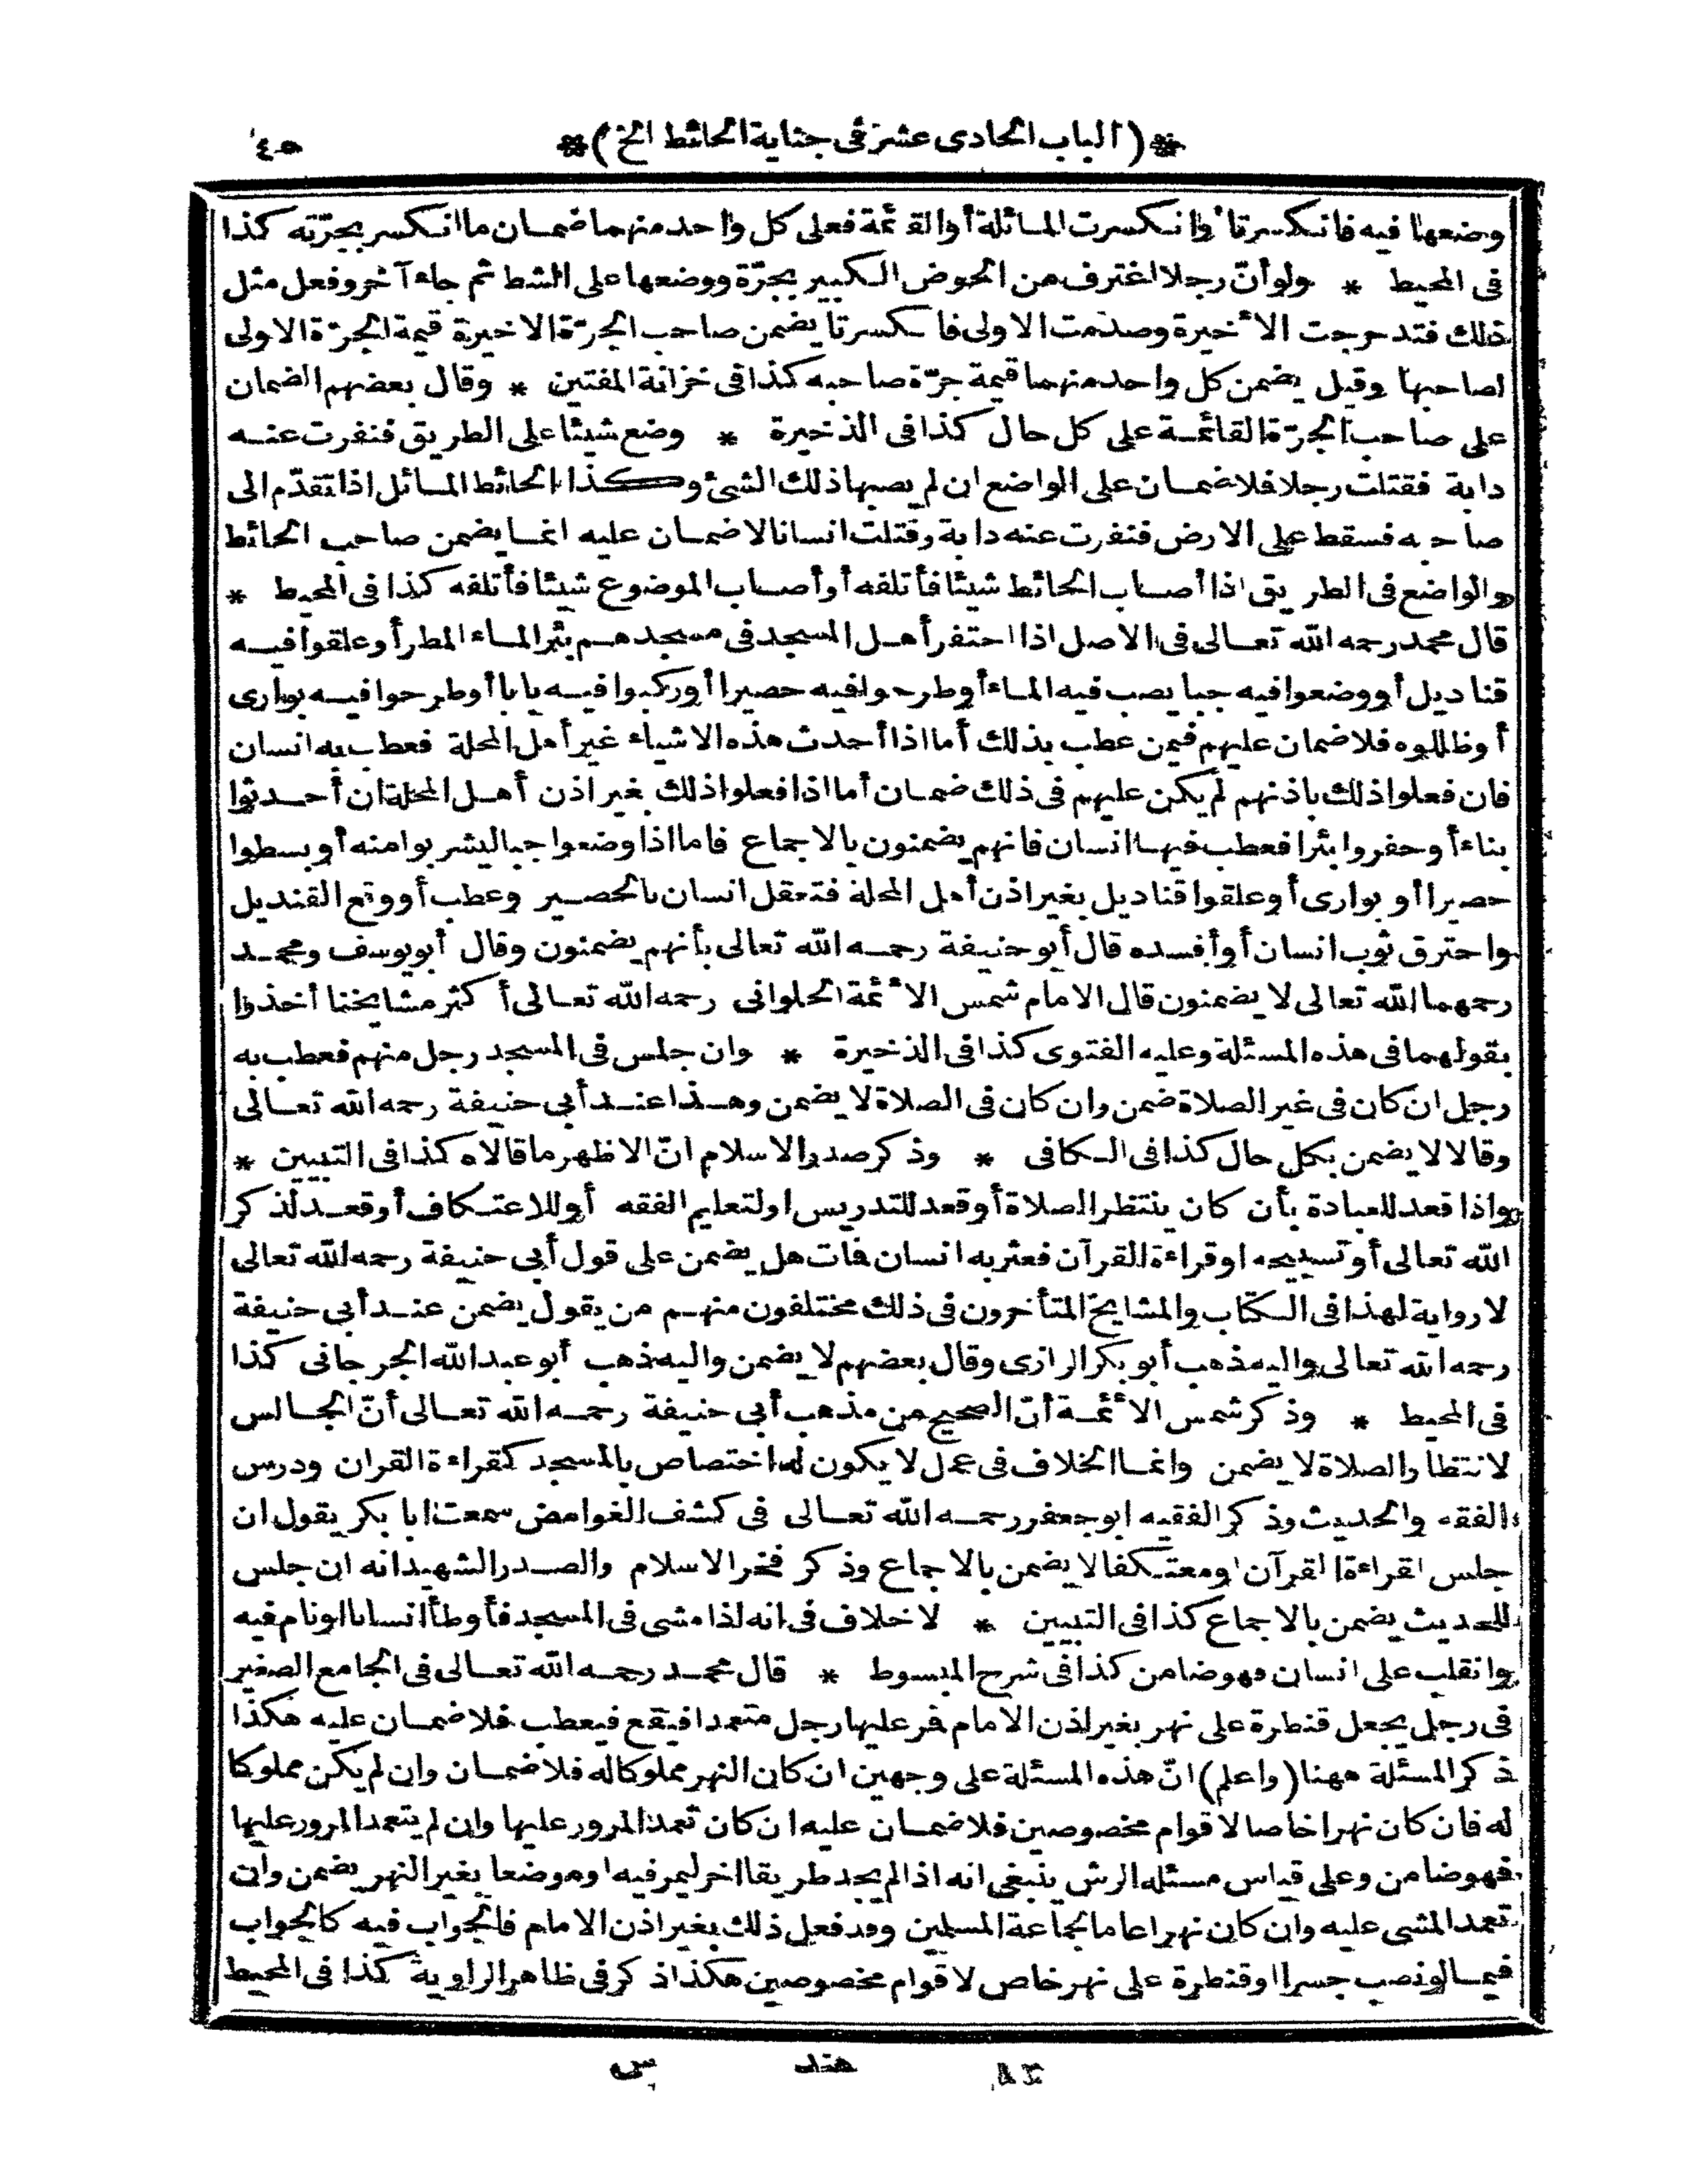 *(الباب الحادى عشر فى جناية الحائط الخ)* ٤٥
وضعها فيه فانكسرتا أوانكسرت المائلة أوالقائمة فعلى كل واحد منهما ضمان ماانكسر بجرّته كذا
فى المحيط * ولوأنّ رجلا اغترف من الحوض الكبير بجرّة ووضعها على الشط ثم جاء آخر وفعل مثل
ذلك فتدحرجت الأخيرة وصدمت الاولى فانكسرتا يضمن صاحب الجرّة الاخيرة قيمة الجرّة الاولى
لصاحبها وقيل يضمن كل واحد منهما قيمة جرّة صاحبه كذا فى خزانة المفتين * وقال بعضهم الضمان
على صاحب الجرّة القائمة على كل حال كذا فى الذخيرة * وضع شيئا على الطريق فنفرت عنه
دابة فقتلت رجلا فلا ضمان على الواضع ان لم يصبها ذلك الشئ وكذا الحائط المائل اذا تقدّم الى
صاحبه فسقط على الارض فنفرت عنه دابة وقتلت انسانا لاضمان عليه انما يضمن صاحب الحائط
والواضع فى الطريق اذا أصاب الحائط شيئا فأتلفه أوأصاب الموضوع شيئا فأتلفه كذا فى المحيط *
قال محمد رحمه الله تعالى فى الاصل اذا احتفر أهل المسجد فى مسجدهم بئرا لماء المطر أوعلقوا فيه
قناديل أووضعوا فيه جبا يصب فيه الماء أوطرحوا فيه حصيرا أوركبوا فيه بابا أوطرحوا فيه بوارى
أوظللوه فلا ضمان عليهم فيمن عطب بذلك أما اذا أحدث هذه الاشياء غير أهل المحلة فعطب به انسان
فان فعلوا ذلك باذنهم لم يكن عليهم فى ذلك ضمان أما اذا فعلوا ذلك بغير اذن أهل المحلة ان أحدثوا
بناء أوحفروا بئرا فعطب فيها انسان فانهم يضمنون بالاجماع فاما اذا وضعوا جبا ليشربوا منه أوبسطوا
حصيرا أو بوارى أوعلقوا قناديل بغير اذن أهل المحلة فتعقل انسان بالحصير وعطب أووقع القنديل
واحترق ثوب انسان أوأفسده قال أبو حنيفة رحمه الله تعالى بأنهم يضمنون وقال أبويوسف ومحمد
رحمهما الله تعالى لا يضمنون قال الامام شمس الأئمة الحلوانى رحمه الله تعالى أكثر مشايخنا أخذوا
بقولهما فى هذه المسئلة وعليه الفتوى كذا فى الذخيرة * وان جلس فى المسجد رجل منهم فعطب به
رجل ان كان فى غير الصلاة ضمن وان كان فى الصلاة لا يضمن وهذا عند أبى حنيفة رحمه الله تعالى
وقالا لا يضمن بكل حال كذا فى الكافى * وذكر صدر الاسلام انّ الاظهر ماقالاه كذا فى التبيين *
واذا قعد للعبادة بأن كان ينتظر الصلاة أوقعد للتدريس اولتعليم الفقه أوللاعتكاف أوقعد لذكر
الله تعالى أوتسبيحه اوقراءة القرآن فعثر به انسان فمات هل يضمن على قول أبى حنيفة رحمه الله تعالى
لا رواية لهذا فى الكتاب والمشايخ المتأخرون فى ذلك مختلفون منهم من يقول يضمن عند أبى حنيفة
رحمه الله تعالى واليه ذهب أبو بكر الرازى وقال بعضهم لا يضمن واليه ذهب أبو عبد الله الجرجانى كذا
فى المحيط * وذكر شمس الأئمة أنّ الصحيح من مذهب أبى حنيفة رحمه الله تعالى أنّ الجالس
لانتظار الصلاة لا يضمن وانما الخلاف فى عمل لا يكون له اختصاص بالمسجد كقراءة القران ودرس
الفقه والحديث وذكر الفقيه ابوجعفر رحمه الله تعالى فى كشف الغوامض سمعت ابا بكر يقول ان
جلس لقراءة القرآن اومعتكفا لا يضمن بالاجماع وذكر فخر الاسلام والصدر الشهيد انه ان جلس
للحديث يضمن بالاجماع كذا فى التبيين * لا خلاف فى انه اذا مشى فى المسجد فأوطأ انسانا اونام فيه
وانقلب على انسان فهو ضامن كذا فى شرح المبسوط * قال محمد رحمه الله تعالى فى الجامع الصغير
فى رجل يجعل قنطرة على نهر بغير اذن الامام فمر عليها رجل متعمدا فيقع فيعطب فلا ضمان عليه هكذا
ذكر المسئلة ههنا (واعلم) انّ هذه المسئلة على وجهين ان كان النهر مملوكا له فلا ضمان وان لم يكن مملوكا
له فان كان نهرا خاصا لاقوام مخصوصين فلا ضمان عليه ان كان تعمد المرور عليها وان لم يتعمد المرور عليها
فهو ضامن وعلى قياس مسئلة الرش ينبغى انه اذا لم يجد طريقا اخر ليمر فيه اوموضعا بغير النهر يضمن وان
تعمد المشى عليه وان كان نهرا عاما لجماعة المسلمين وقد فعل ذلك بغير اذن الامام فالجواب فيه كالجواب
فيما لو نصب جسرا اوقنطرة على نهر خاص لاقوام مخصوصين هكذا ذكر فى ظاهر الراوية كذا فى المحيط
هند س